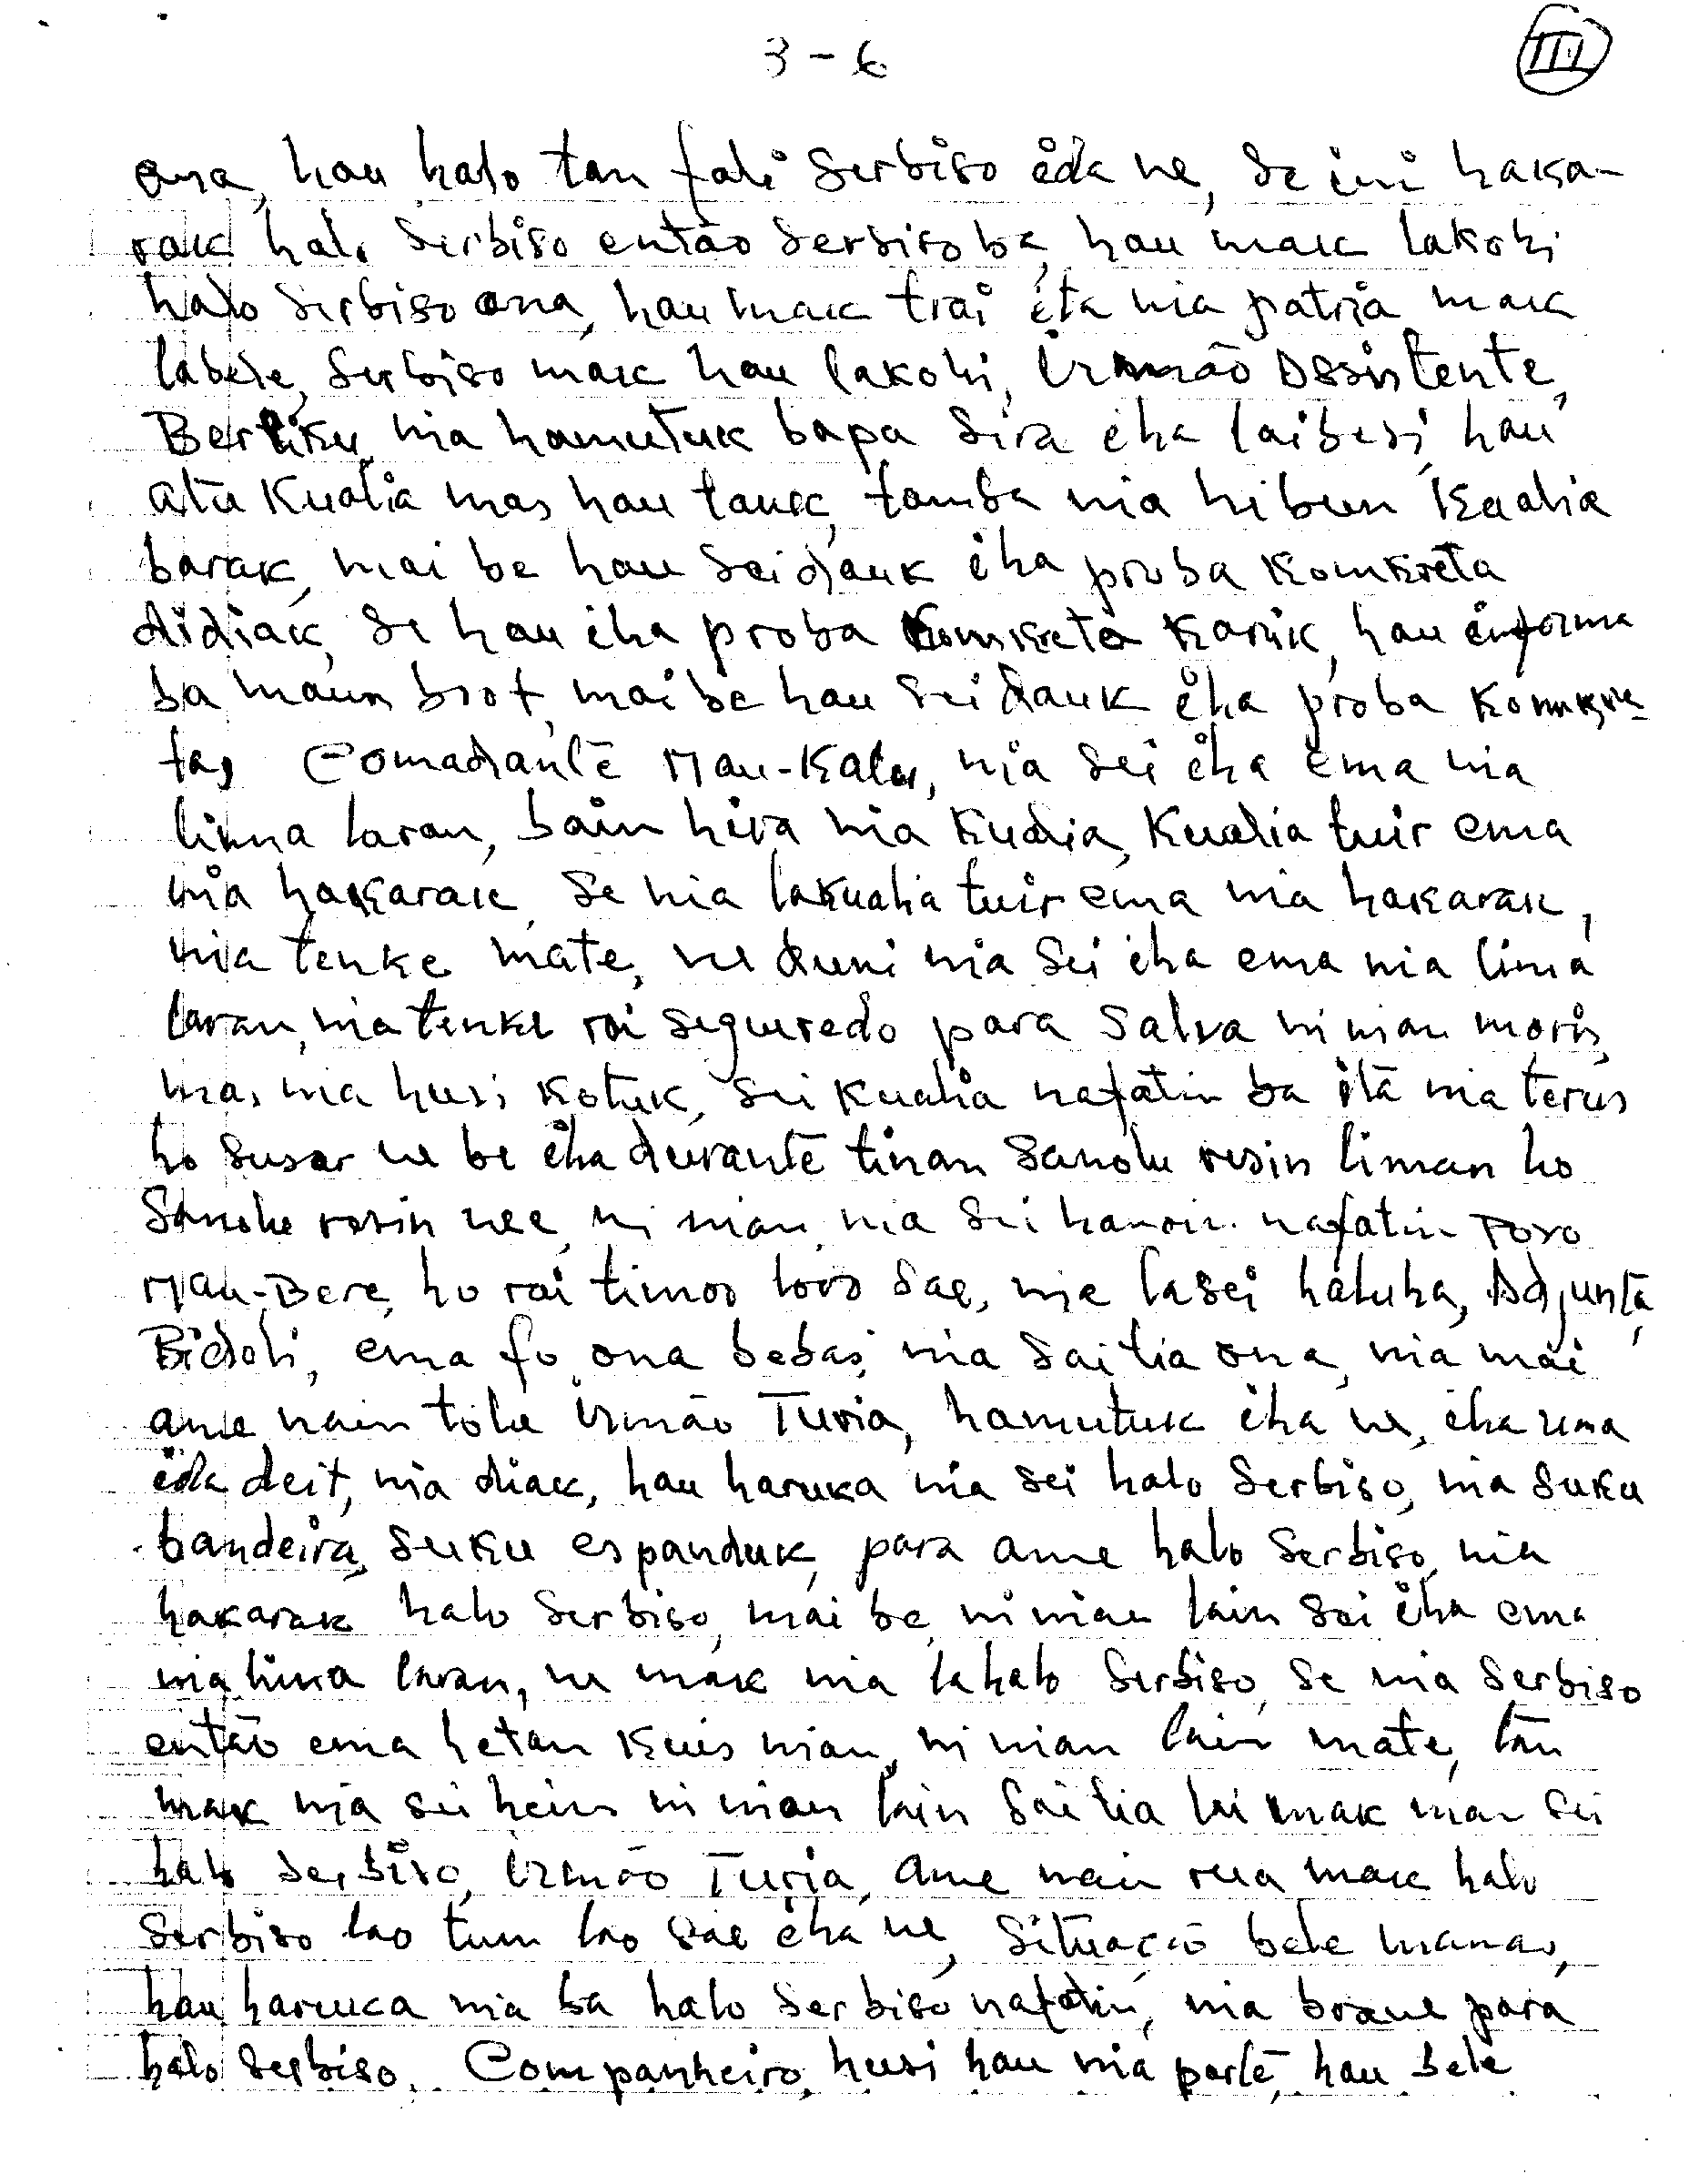 3 - 6
III
ona, hau halo tan fali Serbiso ida ne, Se imi haka-
rak halo Serbiso então Serbiso ba, hau mak lakohi
halo Serbiso ona, hau mak trai ita nia patria mak
labele, Serbiso mak hau lakohi, Irmão Assistente,
Berliku, nia hamutuk bapa Sira iha laibesi, hau
atu Kualia mas hau tauk, tamba nia hibun Kualia
barak, mai be hau Seidauk iha proba Komkreta
didiak, Se hau iha proba Komkreta Karik, hau informa
ba maun boot, mai be hau Seidauk iha proba Komkre-
tas Comadante Mau-Kalu, nia Sei iha ema nia
lima laran, bain hira nia Kualia, Kualia tuir ema
nia hakarak, Se nia lakualia tuir ema nia hakarak,
nia tenke mate, ne duni nia Sei iha ema nia lima
laran, nia tenke rai segueredo para Salva ni nian moris,
mas nia husi Kotuk, Sei Kualia nafatin ba ita nia terus
ho Susar ne be iha durante tinan Sanolu resin liman ho
Sanolu resin nee, ni nian, nia Sei hanoin nafatin Povo
Mau-Bere, ho rai timor loro Sae, nia lasei haluha, Adjunta,
Bidohi, ema fo ona bebas, nia Sai tia ona, nia mai
ame nain tolu Irmão Turia, hamutuk iha ne, iha uma
ida deit, nia diak, hau haruka nia sei halo Serbiso, nia Suku
bandeira, Suku espanduk, para ame halo Serbiso, nia
hakarak halo Serbiso, mai be, ni nian lain Sei iha ema
nia lima laran, ne mak nia la halo Serbiso, Se nia Serbiso
então ema hetan Kuis nian, ni nian lain mate, tan
mak nia sei hein ni nian lain Sai tia lai mak nian sei
halo Serbiso, Irmão Turia, Ame nain rua mak halo
Serbiso lao tun lao Sae iha ne, Situação bele manas,
hau haruca nia ba halo Serbiso nafatin, nia brane para
halo Serbiso. Companheiro, husi hau nia parte, hau bele